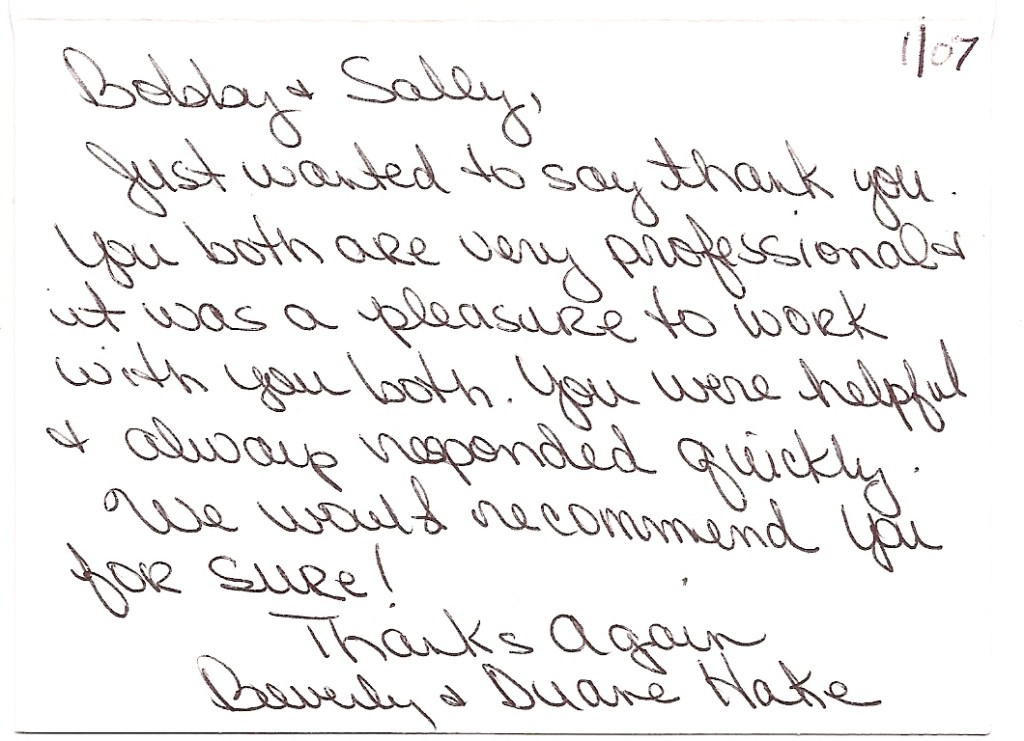 1/07
Bobby & Sally,
Just wanted to say thank you.
You both are very professional &
it was a pleasure to work
with you both. You were helpful
& always responded quickly.
We would recommend you
for sure!
Thanks Again
Beverly & Duane Hake